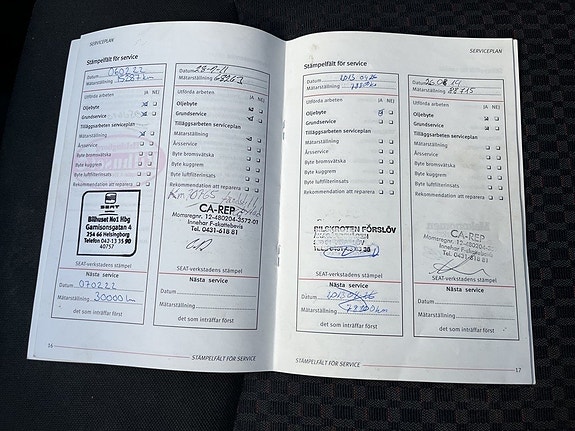 SERVICEPLAN
Stämpelfält för service
Datum 060222
Mätarställning 15287 km
Utförda arbeten JA NEJ
Oljebyte
Grundservice
Tilläggsarbeten serviceplan
Mätarställning
Årsservice
Byte bromsvätska
Byte kuggrem
Byte luftfilterinsats
Rekommendation att reparera
SEAT
Bilhuset No1 Hbg
Garnisonsgatan 4
254 66 Helsingborg
Telefon 042-13 35 90
40757
SEAT-verkstadens stämpel
Nästa service
Datum 070222
Mätarställning 30000 km
det som inträffar först
Datum
Mätarställning
Utförda arbeten JA NEJ
Oljebyte
Grundservice
Tilläggsarbeten serviceplan
Mätarställning
Årsservice
Byte bromsvätska
Byte kuggrem
Byte luftfilterinsats
Rekommendation att reparera
CA-REP
Momsregnr. 12-480204-3572-01
Innehar F-skattebevis
Tel. 0431-618 81
SEAT-verkstadens stämpel
Nästa service
Datum
Mätarställning
det som inträffar först
16
STÄMPELFÄLT FÖR SERVICE
SERVICEPLAN
Stämpelfält för service
Datum 2013 04 26
Mätarställning
Utförda arbeten JA NEJ
Oljebyte
Grundservice
Tilläggsarbeten serviceplan
Mätarställning
Årsservice
Byte bromsvätska
Byte kuggrem
Byte luftfilterinsats
Rekommendation att reparera
BILSKROTEN FÖRSLÖV
SEAT-verkstadens stämpel
Nästa service
Datum
Mätarställning
det som inträffar först
Datum
Mätarställning 88715
Utförda arbeten JA NEJ
Oljebyte
Grundservice
Tilläggsarbeten serviceplan
Mätarställning
Årsservice
Byte bromsvätska
Byte kuggrem
Byte luftfilterinsats
Rekommendation att reparera
CA-REP
Innehar F-skattebevis
Tel. 0431-618 81
SEAT-verkstadens stämpel
Nästa service
Datum
Mätarställning
det som inträffar först
STÄMPELFÄLT FÖR SERVICE
17